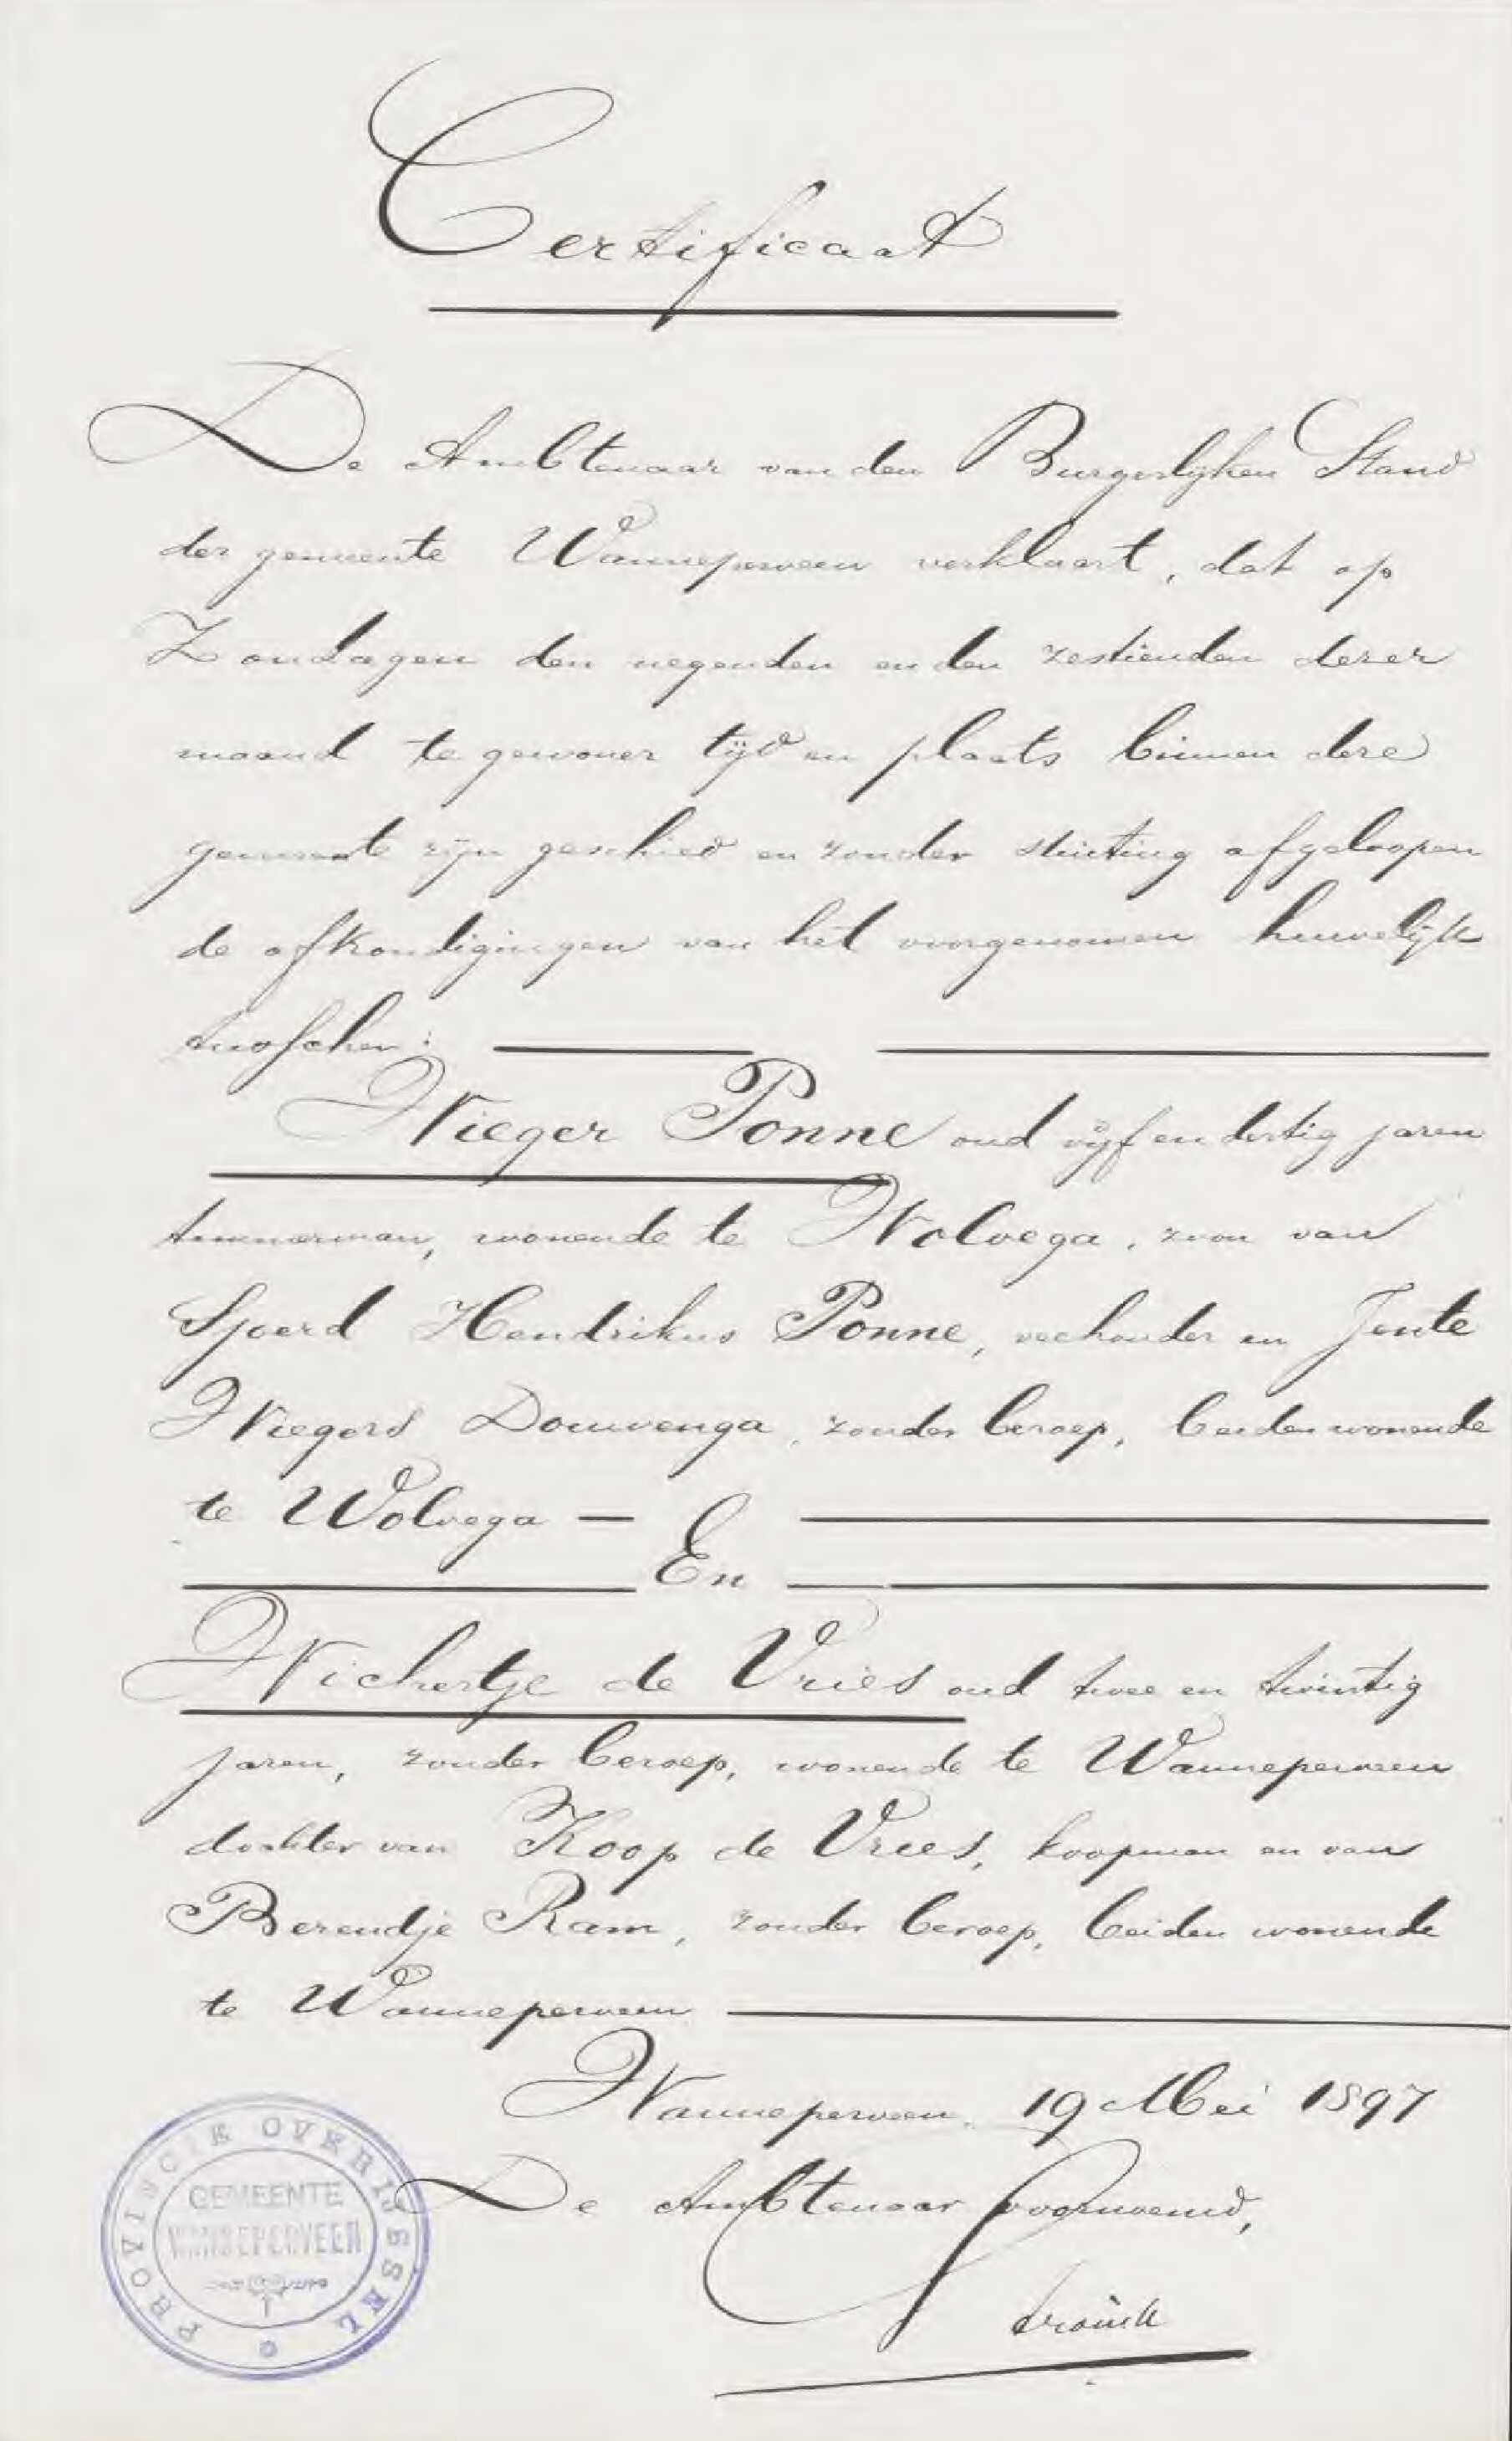 Certificaat
De Ambtenaar van den Burgerlijken Stand
der gemeente Wanneperveen verklaart, dat op
Zondagen den negenden en den zestienden dezer
maand te gewoner tijd en plaats binnen deze
gemeente zijn geschied en zonder stuiting afgeloopen
de afkondigingen van het voorgenomen huwelijk
tusschen:
Wieger Ponne oud vijf en dertig jaren
timmerman, wonende te Wolvega, zoon van
Sjoerd Hendrikus Ponne, veehouder en Jente
Wiegers Douwenga, zonder beroep, beiden wonende
te Wolvega —
En
Wichertje de Vries oud twee en twintig
jaren, zonder beroep, wonende te Wanneperveen
dochter van Koop de Vries, koopman en van
Berendje Ram, zonder beroep, beiden wonende
te Wanneperveen
Wanneperveen, 19 Mei 1897
De Ambtenaar voornoemd,
PROVINCIE OVERIJSSEL
GEMEENTE
WANNEPERVEEN